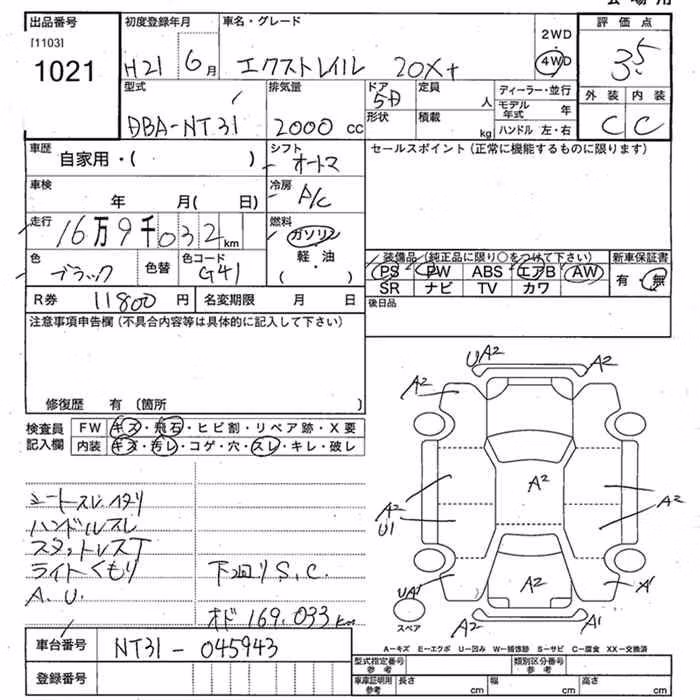 会場用
出品番号 初度登録年月 車名・グレード 評価点
[1103]
1021
H21 6月 エクストレイル 20X+ 2WD 4WD 3.5
型式 排気量 ドア 定員 ディーラー・並行 外装 内装
DBA-NT31 2000cc 5D 人 モデル年式 年 C C
形状 積載 kg ハンドル 左・右
車歴 シフト セールスポイント(正常に機能するものに限ります)
自家用・( ) オートマ
車検 冷房
年 月( 日) A/C
走行 燃料
16万9千032km ガソリン
軽・油
( ・ )
色 色替 色コード
ブラック G41
装備品(純正品に限り○をつけて下さい) 新車保証書
PS PW ABS エアB AW 有・無
SR ナビ TV カワ
R券 11800円 名変期限 月 日 後日品
注意事項申告欄(不具合内容等は具体的に記入して下さい)
修復歴 有(箇所 )
検査員記入欄 FW キズ・飛石・ヒビ割・リペア跡・X要
内装 キズ・汚レ・コゲ・穴・スレ・キレ・破レ
シートスレ、ヘタリ
ハンドルスレ
スタットレスT
ライトくもり 下回りS.C.
A.U.
オド 169,033km
UA2 A2
A2
A2
A2 U1 A2
UA1 A2 A1
スペア A2 A1
A−キズ E−エクボ U−凹み W−補修跡 S−サビ C−腐食 XX−交換済
車台番号 NT31-045943
登録番号
型式指定番号 参考 類別区分番号 参考
車庫証明用 参考 長さ cm 幅 cm 高さ cm